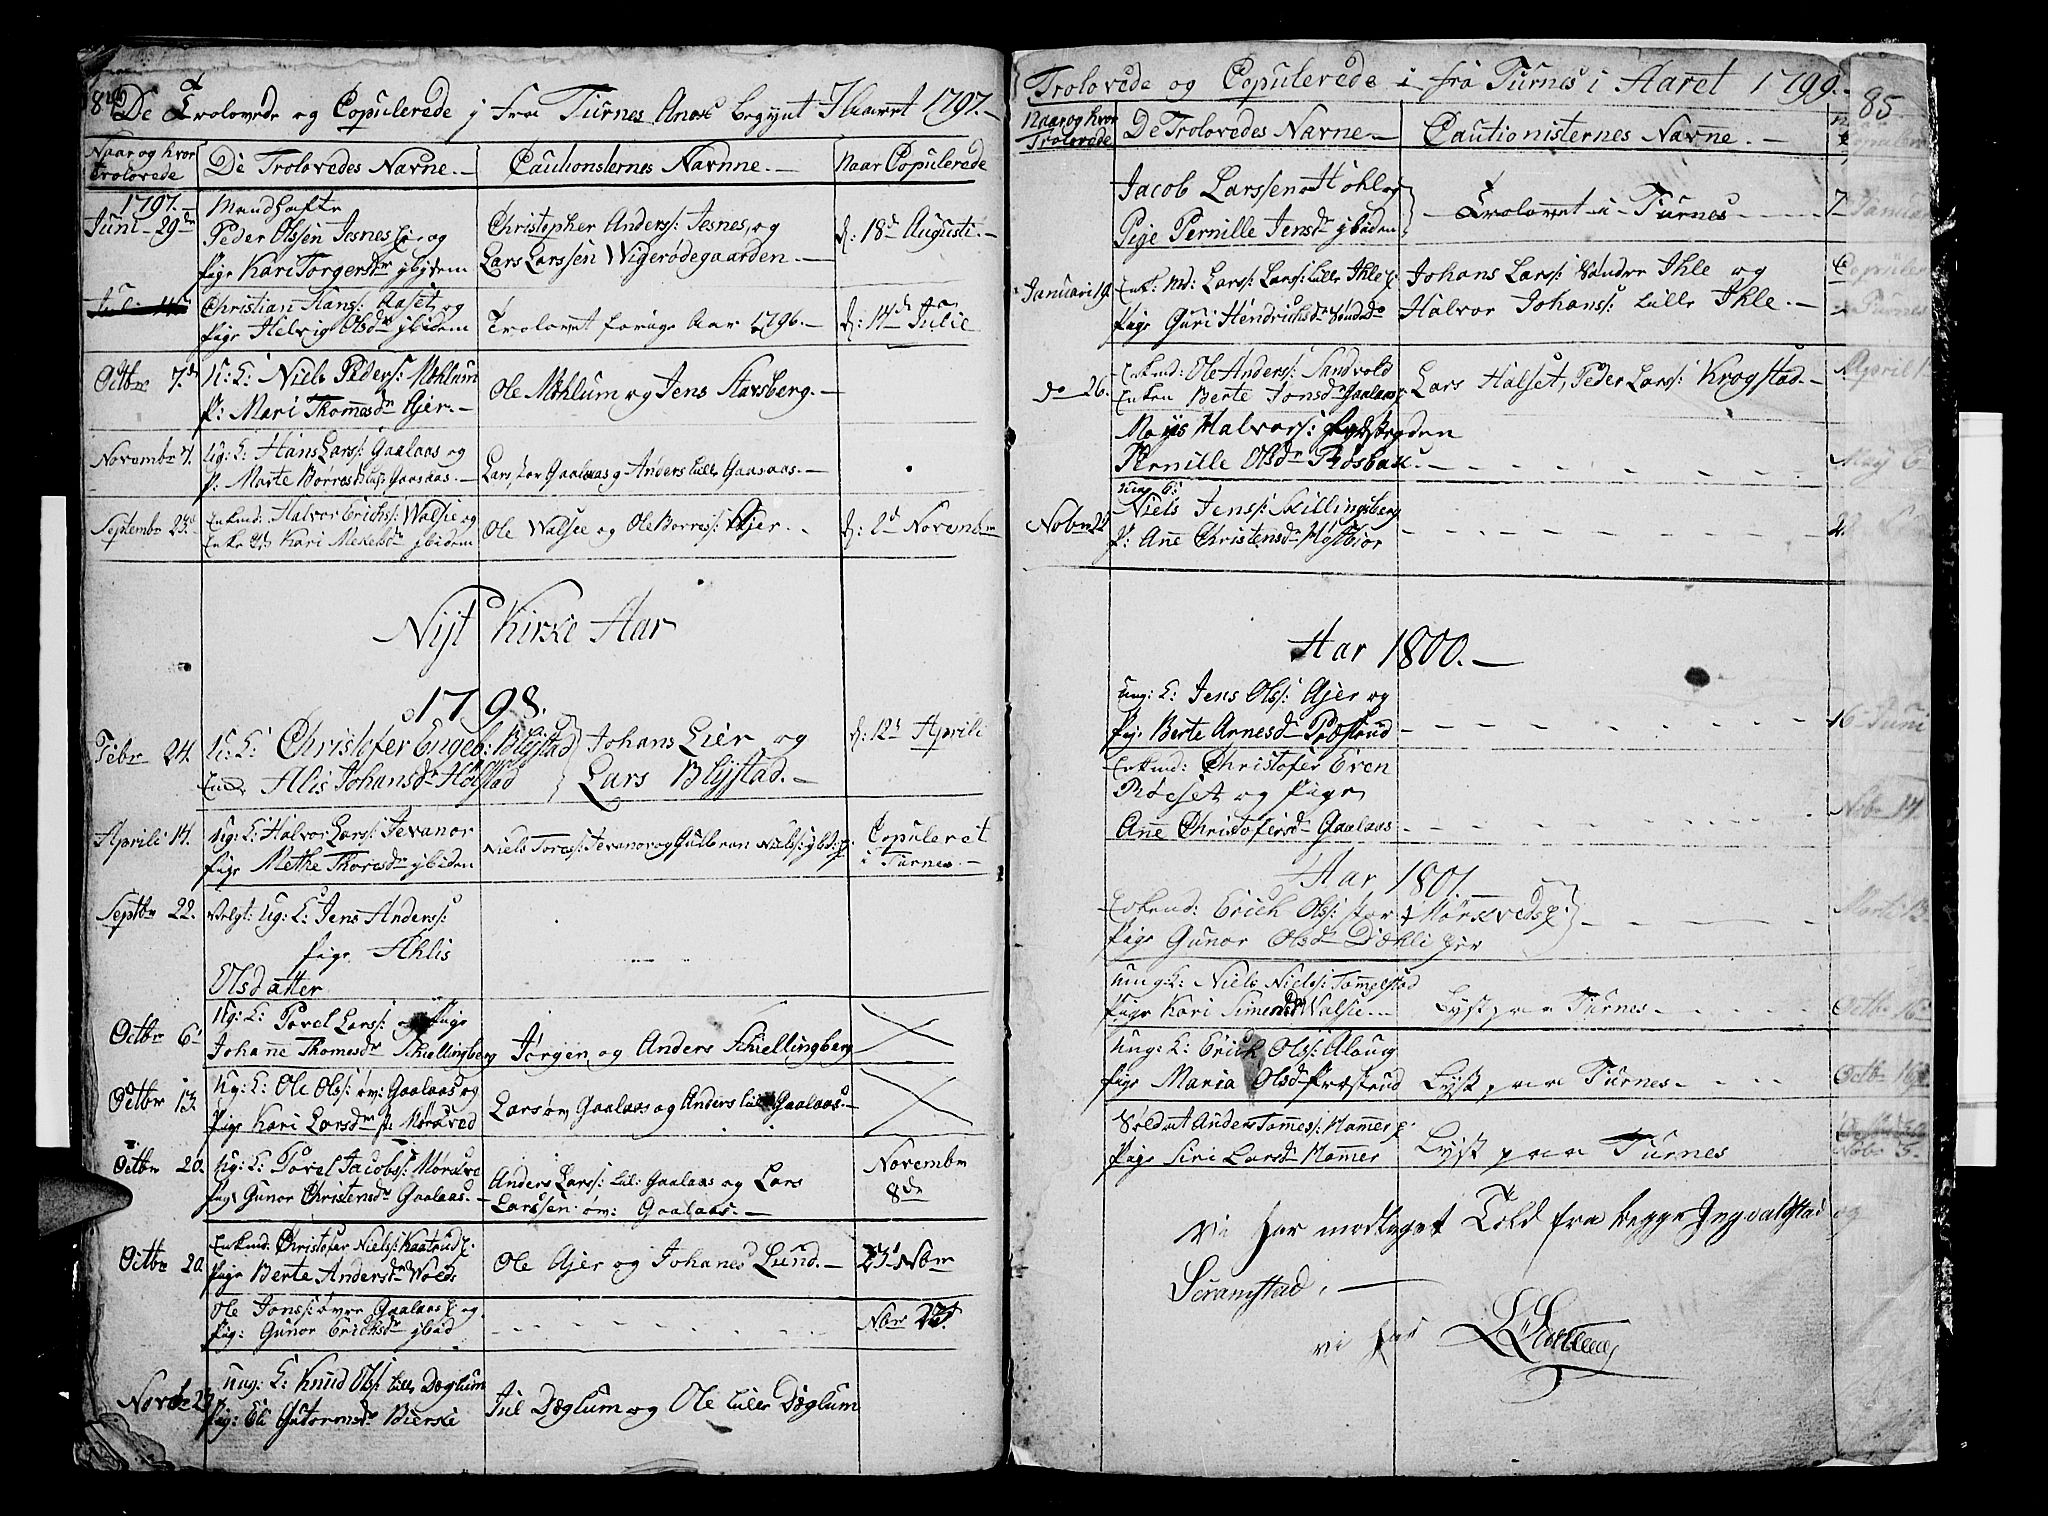 84
De Trolovede og Copulerede i fra Furnes Anex begynt I Aaret 1797.
Naar og hvor Trolovede
De Trolovedes Navne.
Cautionsternes Navnne.
Naar Copulerede
1797.
Juni 29de
Mandhafte
Peder Olssen Jesnes og
Pige Kari Torgersdr ibidem
Christopher Anders: Jesnes, og
Lars Larssen Wigerødegaarden.
d: 18d Augusti.
Christian Hans: Aaset, og
Pige Helvig Olsdr ibidem
Trolovet forige Aar 1796.
d: 14d Julie
Octbr 7.d
U: K: Niels Peders: Mohlum
P: Mari Thomesdr Ajer.
Ole Mohlum og Jens Stavsberg.
Novembr 7.
Ug: K: Hans Lars: Gaalaas og
P: Marte Børresdr Gaalaas.
Lars Gaalaas og Anders Lille Gaalaas.
Septembr 23d
Enkmd: Halvor Erichs: Walsie og
Enke Kari Mekelsdr ibidem
Ole Walsee og Ole Borres: Ajer.
d: 2d Novembr
Nyt Kirke Aar
1798.
Febr 24.
U: K: Christofer Engeb: Blystad
Alis Johansdr Holstad
Johans Lier og
Lars Blystad.
d: 12t Aprili
Aprili 14.
Ug: K: Halvor Lars: Jevanor
Pige Methe Thoresdr ibiden
Niels Tores: Jevanor og Gulbran Niels: ibd:
Copuleret
i Furnes.
Septbr 22.
Velgt: Ug: K: Jens Anders:
Pige Ahlis
Olsdatter
Octbr 6t
Ug: K: Povel Lars: og Pige
Johanne Thomesdr Schiellingberg
Jørgen og Anders Schiellingberg
Octbr 13.
Ug: K: Ole Ols: øv: Gaalaas og
Pige Kari Larsdr Mørkved
Lars øv Gaalaas og Anders lille Gaalaas.
Octbr 20.
Ug: K: Povel Jacobs: Mørkve
Pige Gunor Christensdr Gaalaas.
Anders Lars: Lil: Gaalaas og Lars
Larssen øv: Gaalaas.
Novembr
8de
Octbr 20
Enkmd: Christofer Niels: Kaatrud
Pige Berte Andersdr Wolds
Ole Ajer og Johanes Lund.
23t Nbr
Ole Jons: øvre Gaalaas og
Pig: Gunor Erichsdr ibid
Nbr 23t
Novbr 29
Ung: K: Knud Ols: Lille Dæglum
Pig: Eli Gutormsdr Bierke
Jul Dæglum og Ole Lille Dæglum
Trolovede og Copulerede i fra Furnes i Aaret 1799.
85.
Naar og hvor Trolovede
De Trolovedes Navne.
Cautionisternes Navne.
Jacob Larssen Hohl og
Pige Pernille Jensdr ibiden
Trolovet i Furnes
7 Januar
Januari 19.
Enk: Md: Lars Lars: Lille Ihle
Pige Guri Hendrichsdr
Johans Lars: Søndre Ihle og
Halvor Johans: Lille Ihle.
Copuler
Furnes
do 26.
Enkmd: Ole Anders: Sandvold
Enken Berte Jonsdr Gaalaas
Lars Halset, Peder Lars: Krogstad.
April
Moyns Halvors:
Pernille Olsdr Rosbak.
May 6
Nobr 21
Ung K:
Niels Jens: Skillingsberg
P: Ane Christensdr Hystbior
Aar 1800.
Ung: K: Jens Ols: Ajer og
Pig: Berte Arnesdr Præstrud
16 Juni
Enkmd: Christofer Even
Røeset og Pige
Ane Christofersdr Gaalaas
Nobr 14
Aar 1801.
Enkemd: Erich Ols: stor Mørkveds
Pige Gunor Olsdr Dæhli
Marti 13
Ung: K: Niels Niels: Tomelstad
Pige Kari Simensdr Walsie
Lyst paa Furnes
Octbr 16
Ung: K: Erich Ols: Aloug
Pige Maria Olsdr Præstrud
Lyst paa Furnes
Octbr 16
Soldat Anders Tomes: Hamer
Pige Siri Larsdr Hammer
Lyst paa Furnes
Nobr 5
Vi har modtaget Told fra begge Jngvaldstad og
Seramstad.
vi har